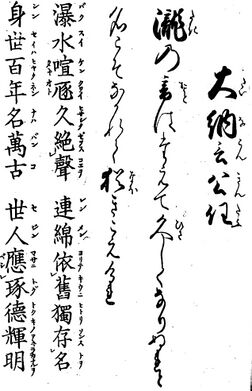 大納言公任
瀧の音はたえて久しくなりぬれと
名こそなかれて猶きこえけれ
瀑水喧豗久絶聲 連綿依舊獨存名
身世百年名萬古 世人應琢德輝明